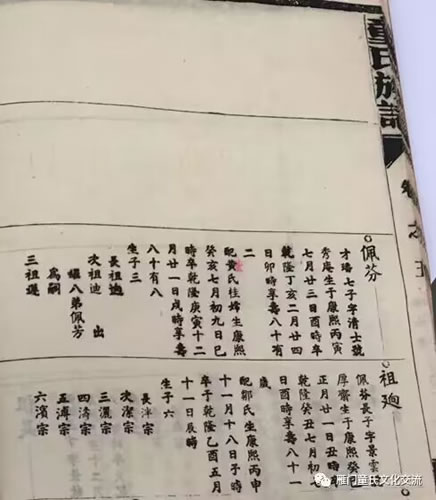 童氏族譜
卷之五
佩芬
才珞七子字清士號
秀庵生康熙丙寅
七月廿三日酉時卒
乾隆丁亥二月廿四
日卯時享壽八十有
二
配黃氏桂生康熙
癸亥七月初九日巳
時卒乾隆庚寅十二
月廿一日戌時享壽
八十有八
生子三
長祖廻
次祖迪 出
繼八弟佩芳
為嗣
三祖選
祖廻
佩芬長子字景雲
厚齋生于康熙癸
正月廿一日丑時
乾隆癸丑七月初
日酉時享壽八十一
歲
配鄒氏生康熙丙申
十一月十八日子時
卒于乾隆乙酉五月
十一日辰時
生子六
長泮宗
次潔宗
三宗
四濤宗
五溥宗
六濱宗
雁门童氏文化交流